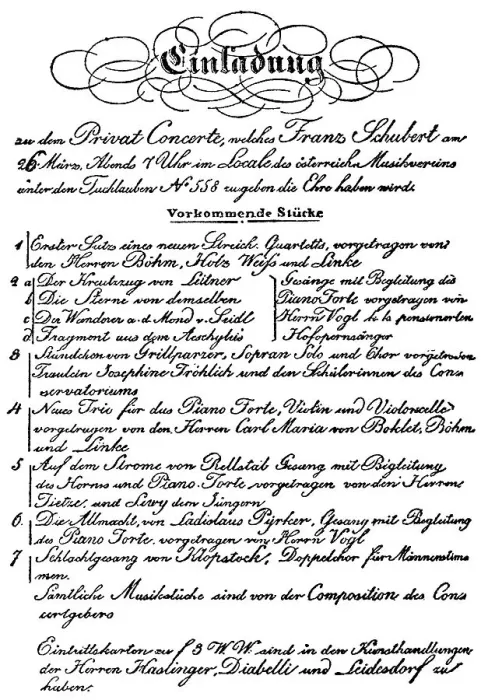 Einladung
zu dem Privat Concerte, welches Franz Schubert am
26 März, Abends 7 Uhr im Locale des österreich. Musikvereins
unter den Tuchlauben No 558 zu geben die Ehre haben wird.
Vorkommende Stücke
1 Erster Satz eines neuen Streich. Quartetts, vorgetragen von
den Herren Böhm, Holz Weiss und Linke
2 a Der Kreutzzug von Leitner
b Die Sterne von demselben
c Der Wanderer a. d. Mond v. Seidl
d Fragment aus dem Aeschylus
Gesänge mit Begleitung des
Piano Forte vorgetragen von
Herrn Vogl k. k. pensionirten
Hofopernsänger
3 Ständchen von Grillparzer, Sopran Solo und Chor vorgetragen
Fräulein Josephine Fröhlich und den Schülerinnen des Con
servatoriums
4 Neues Trio für das Piano Forte, Violin und Violoncelle
vorgetragen von den Herren Carl Maria von Boklet, Böhm
und Linke
5 Auf dem Strome von Rellstab Gesang mit Begleitung
des Horns und Piano. Forte vorgetragen von den Herrens
Tietze, und Lewy dem Jüngern
6. Die Allmacht, von Ladislaus Pyrker, Gesang mit Begleitung
des Piano Forte, vorgetragen von Herrn Vogl
7 Schlachtgesang von Klopstock, Doppelchor für Männerstim
men.
Sämtliche Musikstücke sind von der Composition des Con
certgebers
Eintrittskarten zu f 3 W. W. sind in den Kunsthandlungen
der Herren Haslinger, Diabelli und Leidesdorf zu
haben.